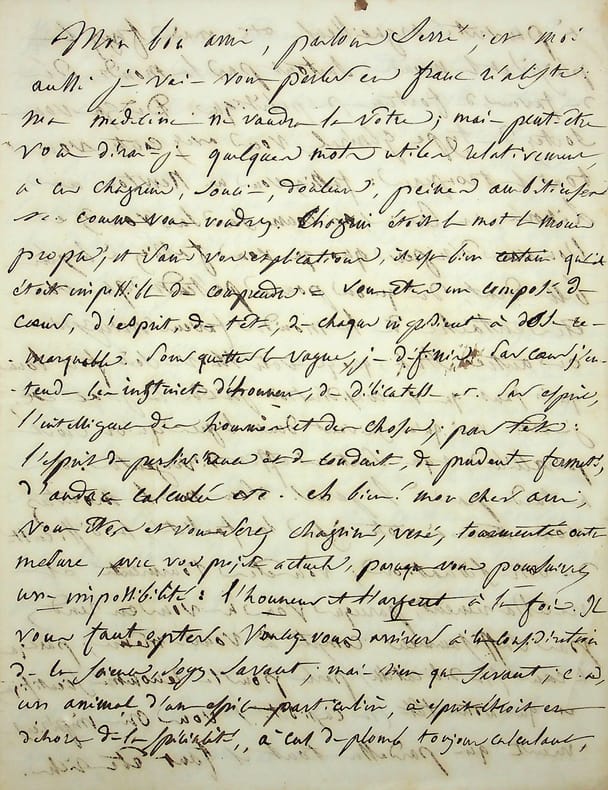 Mon bon ami, parlons serré ; et moi
aussi je vais vous parler en franc réaliste :
ma medecine ne vaudra la votre ; mais peut-être
vous dirai-je quelques mots utiles relativement
à ces chagrins, soucis, douleurs, peines ambitieuses
comme vous voudrez. Chagrin étoit le mot le moins
propre, et sans vos explications, il est bien certain qu'il
étoit impossible de comprendre. Vous êtes un composé de
cœur, d'esprit, de tête, de chaque ingrédient à dose re-
-marquable. Pour quitter le vague, je définis. Par cœur j'en-
-tends les instincts d'honneur, de délicatesse ; par esprit,
l'intelligence des hommes et des choses ; par tête :
l'esprit de persévérance et de conduite, de prudente fermeté,
d'audace calculée etc. eh bien ! mon cher ami,
vous êtes et vous serez chagriné, vexé, tourmenté outre
mesure, avec vos projets actuels, parceque vous poursuivez
une impossibilité : l'honneur et l'argent à la fois. Il
vous faut opter. Voulez-vous arriver à la considération
de la science, soyez savant ; mais rien que savant, c. a. d.
un animal d'une espèce particulière, à esprit étroit en
dehors de la spécialité, à cul de plomb, toujours calculant,